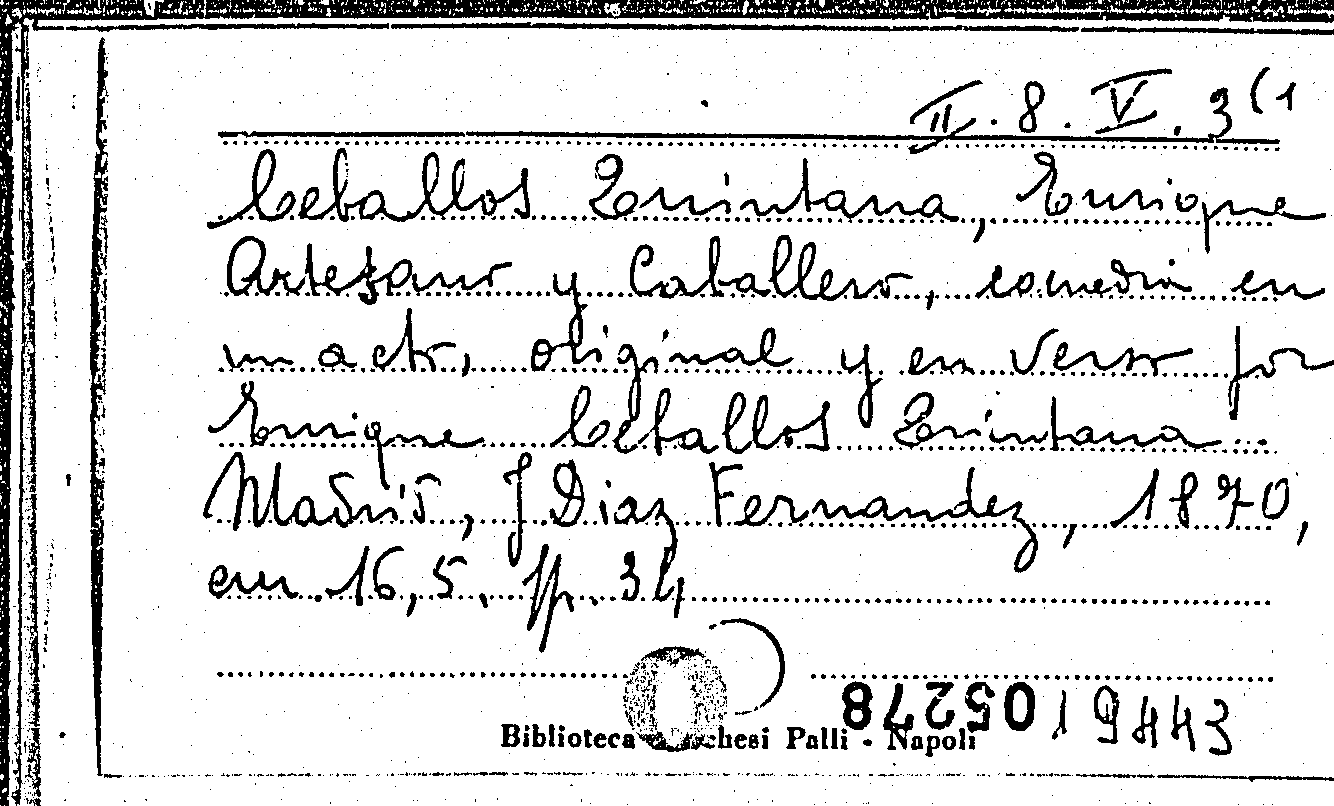 II. 8. V. 3(1
Ceballos Quintana, Enrique
Artesano y Caballero, comedia en
un acto, original y en verso por
Enrique Ceballos Quintana...
Madrid, J Diaz Fernandez, 1870,
cm. 16,5. pp. 34
05278
19443
Biblioteca Palli - Napoli